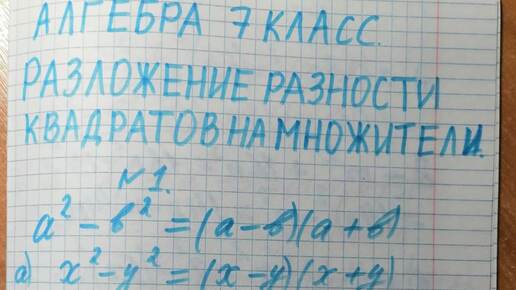 АЛГЕБРА 7 КЛАСС.
РАЗЛОЖЕНИЕ РАЗНОСТИ
КВАДРАТОВ НА МНОЖИТЕЛИ.
№1.
a² - b² = (a - b)(a + b)
а) x² - y² = (x - y)(x + y)